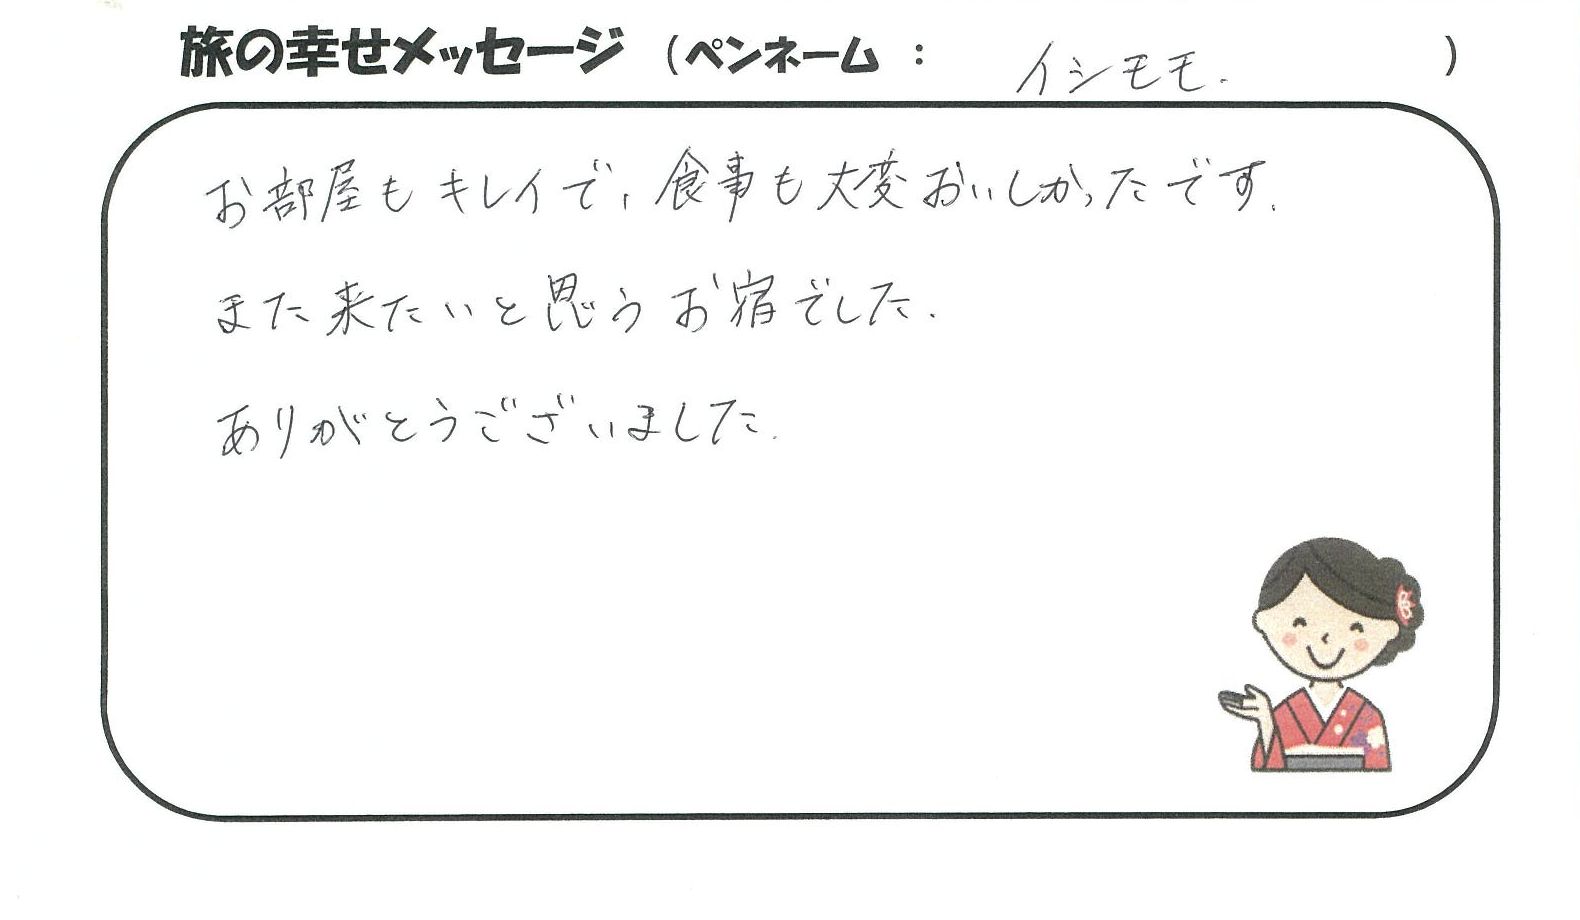 旅の幸せメッセージ （ペンネーム ： イシモモ. ）
お部屋もキレイで、食事も大変おいしかったです.
また来たいと思うお宿でした.
ありがとうございました.